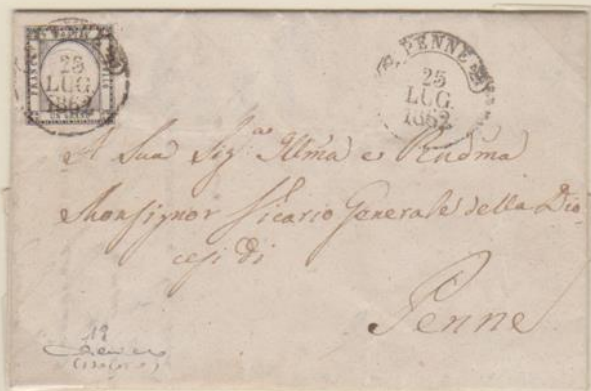 PENNE
25
LUG.
1862
PENNE
25
LUG.
1862
A Sua Sig.ª Illma e Rndma
Monsignor Vicario Generale della Dio-
cesi di
Penne